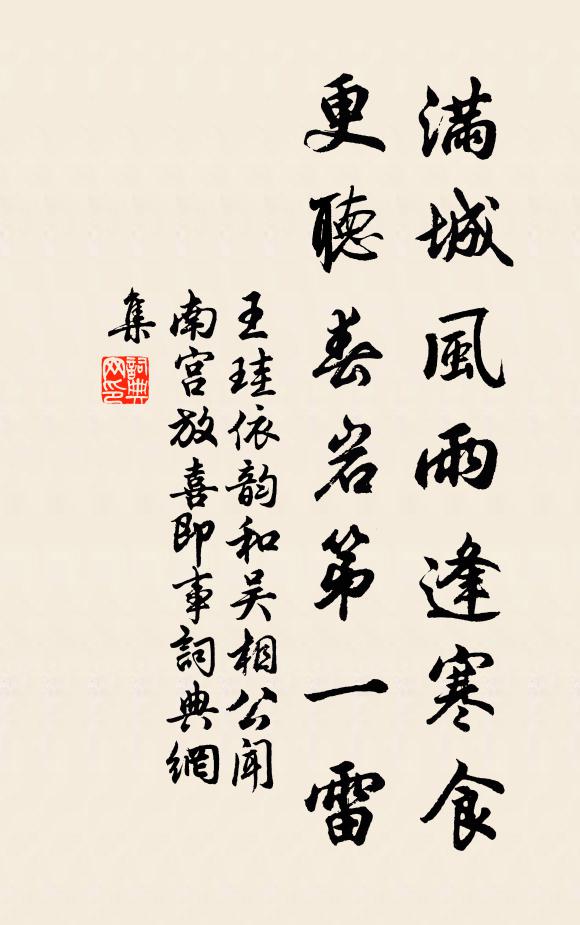 滿城風雨逢寒食
更聽春岩第一雷
王珪依韵和吴相公聞
南宫放喜即事詞典網
集
詞典
网印